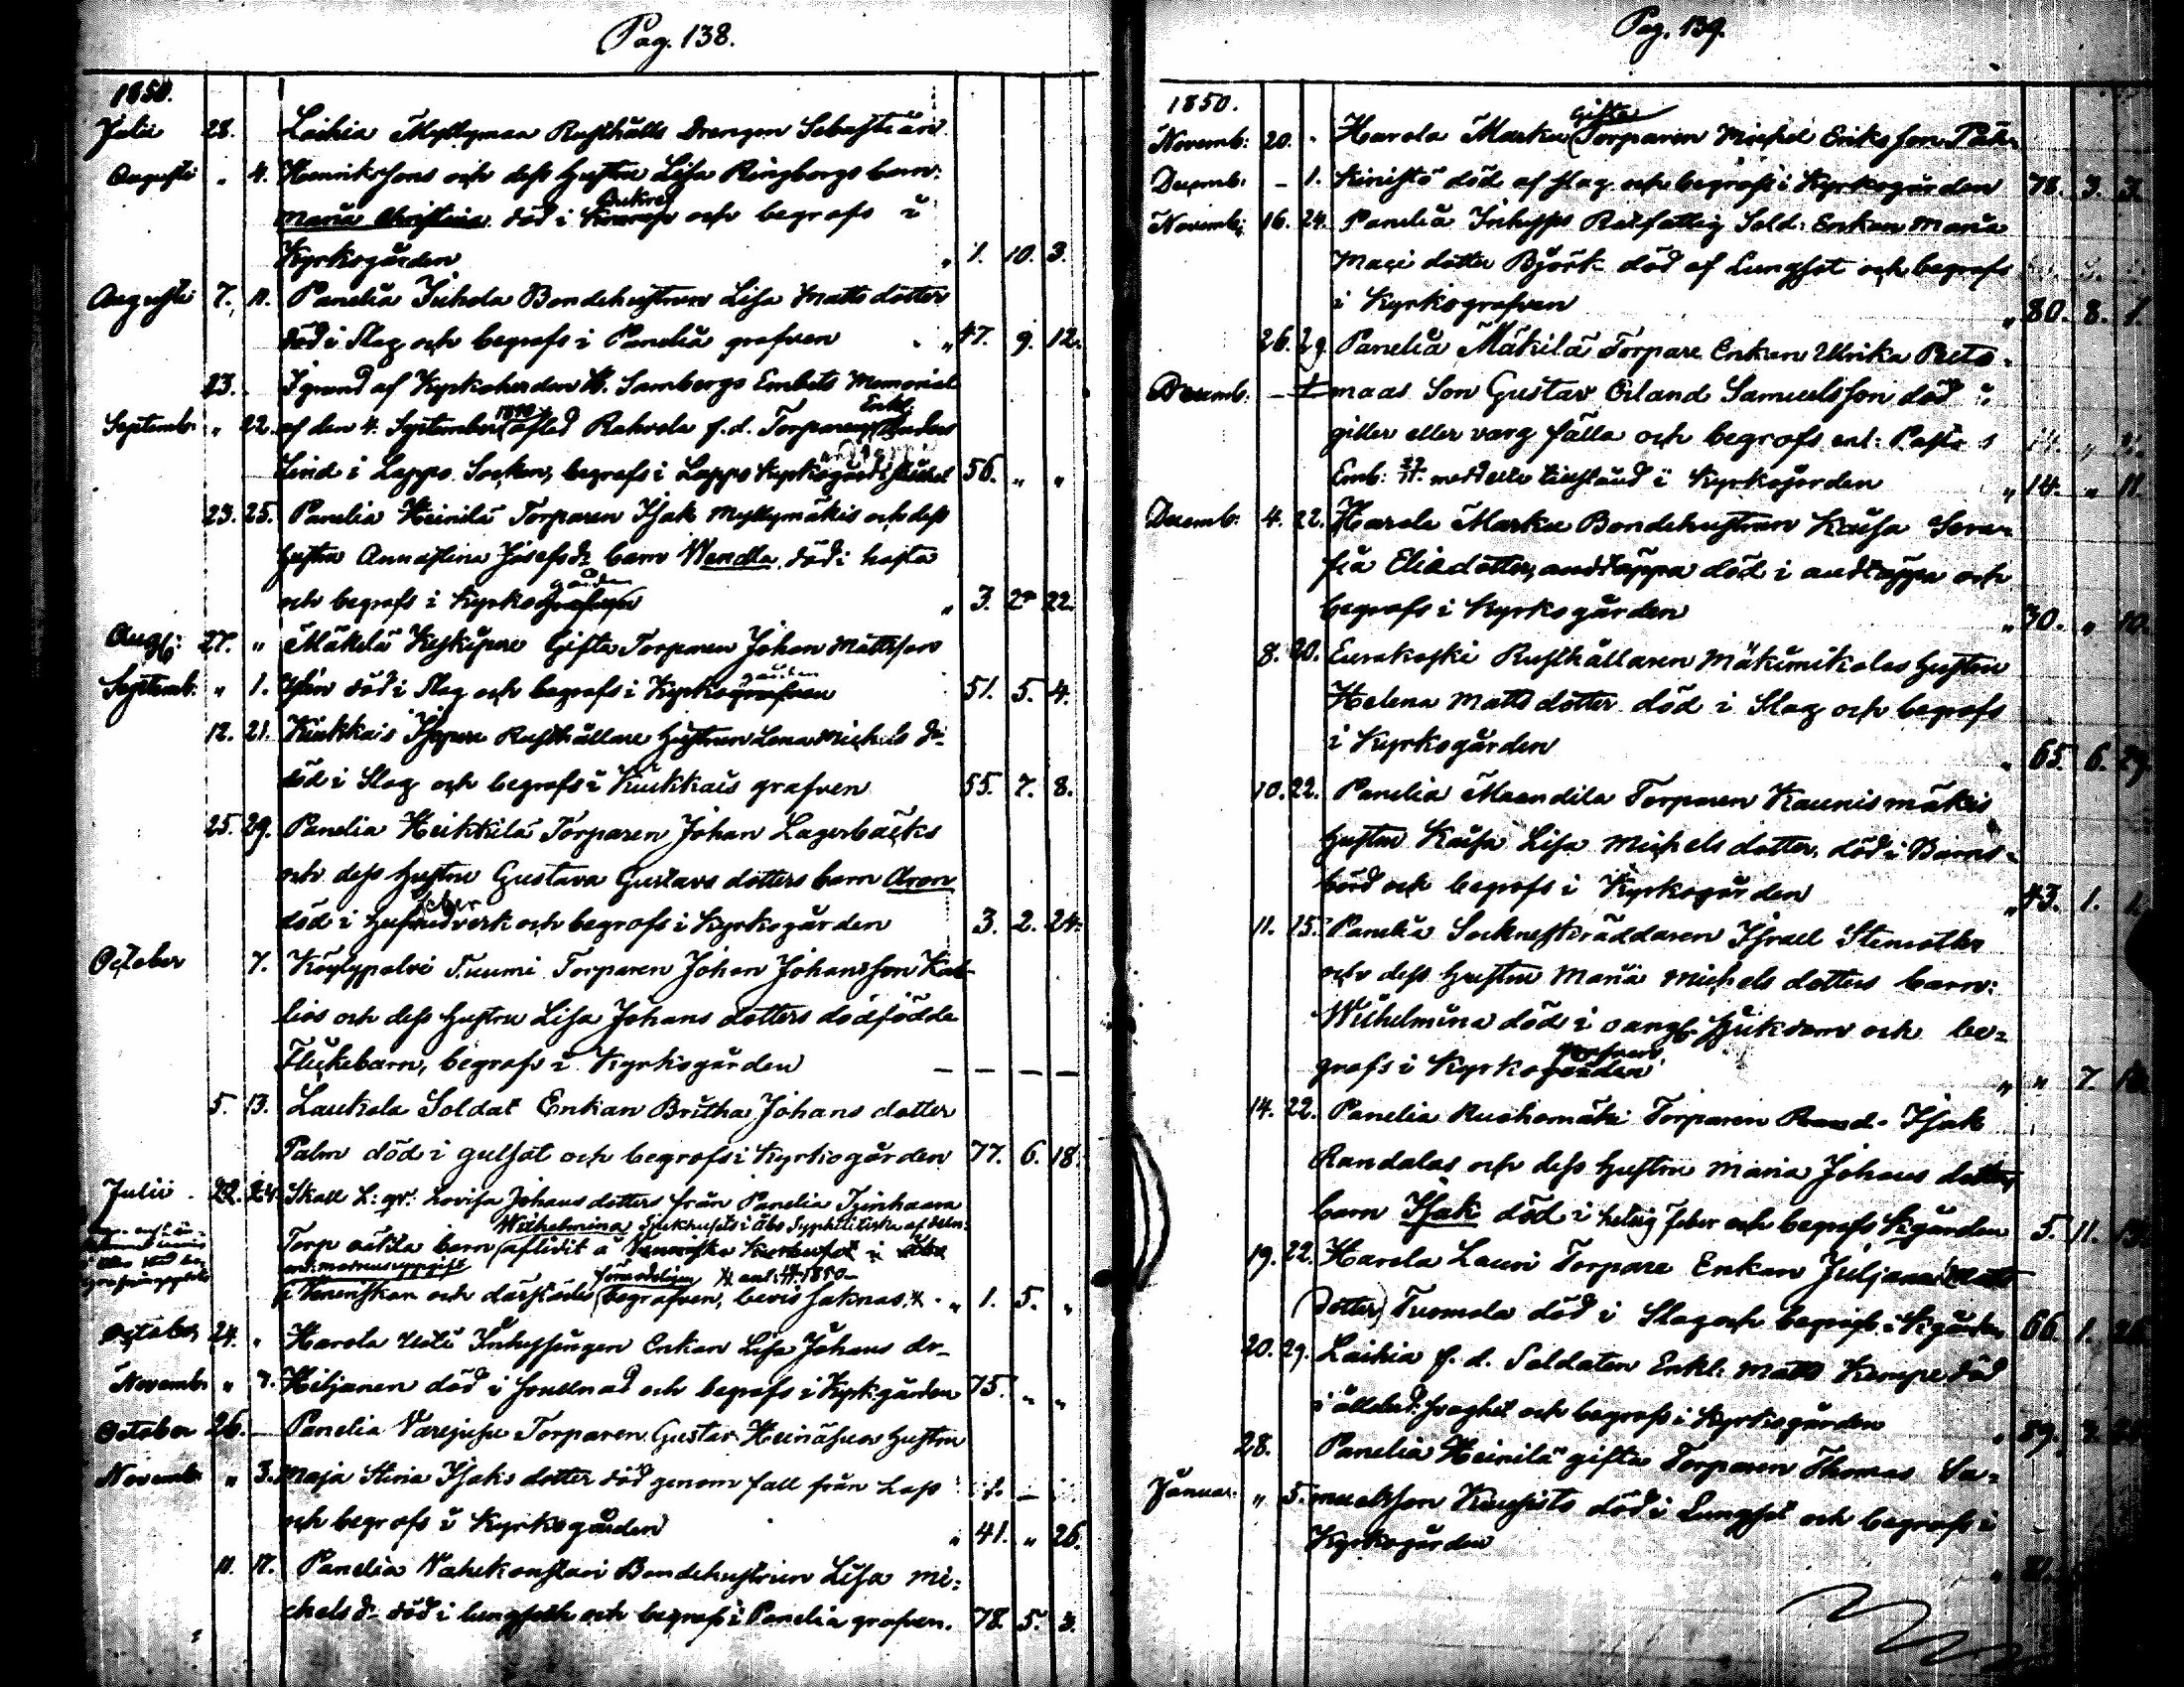 Pag. 138.
1850.
Julii 28. Laihia Myllymaa Rusthålls Drengen Sebastian
Augusti " 4. Henrikssons och dess hustru Lisa Ringborgs barn:
Maria Christina död i och begrofs i
Kyrkogården " 1. 10. 3.
Augusti 7. 11. Panelia Juhola Bondehustrun Lisa Matts dotter
död i Slag och begrofs i Panelia grafven " 47. 9. 12.
23. I grund af Kyrkoherden Sambergs Embets Memorial
Enkl.
Septemb. " 22. af den 4. September afled Rahvola f.d. Torparen Anders
Lind i Lappo Socken, begrofs i Lappo Kyrkogård 56. " "
23. 25. Panelia Heinilä Torparen Isak Myllymäkis och dess
hustru Annastina Josefsdr barn Wendla död i hosta
gården
och begrofs i Kyrkografven " 3. 2 22.
Aug: 27. " Mäkelä Keskipere Gifte Torparen Johan Mattsson
gården
Septemb. " 1. död i Slag och begrofs i Kyrkografven 51. 5. 4.
12. 21. Kiukkais Isopere Rusthållare hustrun Lena Michels dr
död i Slag och begrofs i Kiukkais grafven 55. 7. 8.
25. 29. Panelia Heikkilä Torparen Johan Lagerbäcks
och dess hustru Gustava Gustavs dotters barn Aron
feber
död i hufvudverk och begrofs i Kyrkogården 3. 2. 24.
October 7. Köylypolvi Tuumi Torparen Johan Johansson Kal-
lios och dess hustru Lisa Johans dotters dödfödde
Flickebarn, begrofs i Kyrkogården — — — —
5. 13. Laukola Soldat Enkan Britha Johans dotter
Palm död i gulsot och begrofs i Kyrkogården 77. 6. 18.
Julii 22. 24. Skall L: qv: Lovisa Johans dotters från Panelia
Wilhelmina Sjukhusets i Åbo Syphilitiska afdeln:
Torp oäkta barn aflidit å i Åbo
och därstädes begrafven, bevis saknas. " 1. 5. "
October 24. " Harola Uoti Inhysingen Enkan Lisa Johans dr
Novemb. " 7. Hiljanen död i och begrofs i Kyrkogården 75. " "
October 26. — Panelia Torparen Gustav Heinäsuos hustru
Novemb. " 3. Maja Stina Isaks dotter död genom fall från Lass
och begrofs i Kyrkogården " 41. " 26.
11. 17. Panelia Bondehustrun Lisa Mi-
chels dr död i lungsot och begrofs i Panelia grafven. 78. 5. 3.
Pag. 139.
1850.
Gifte
Novemb: 20. Harola Marku Torparen Michel Eriksson
Decemb. — 1. Kinistö död af slag och begrofs i Kyrkogården 78. 3. 3.
Novemb: 16. 24. Panelia Inhyses Rotfattig Sold: Enkan Maria
Mari dotter Björk död af Lungsot och begrofs
i Kyrkografven " 80. 8. 1.
26. 29. Panelia Mäkilä Torpare Enkan Ulrika
Decemb. maas Son Gustav Erland Samuelsson död i
giller eller varg fälla och begrofs enl: Pasto s
Emb: i Kyrkogården " 14. " 11.
Decemb. 4. 22. Harola Marku Bondehustrun Kaisa Sera-
fia Eliedotter, andtäppa död i andtäppa och
begrofs i Kyrkogården " 30. " 10.
8. 20. Eurakoski Rusthållaren Mäkimikolas hustru
Helena Matts dotter död i Slag och begrofs
i Kyrkogården " 65. 6. 29.
10. 22. Panelia Maandila Torparen Kaunismäkis
hustru Kaisa Lisa Michels dotter, död i Barns-
börd och begrofs i Kyrkogården " 43. 1.
11. 15. Panelia Sockneskräddaren Israel
och dess hustru Maria Michels dotters barn:
Wilhelmina död i oang: sjukdom och be-
grafven
grofs i Kyrkogården " " 7.
14. 22. Panelia Ruohomäki Torparen Isak
Randalas och dess hustru Maria Johans dotters
barn Isak död i hetsig feber och begrofs Kgården 5. 11.
19. 22. Harola Lauri Torpare Enkan Juljana Matts
dotter Tuomola död i Slag och begrofs i Kgården 66. 1.
20. 29. Laihia f.d. Soldaten Enkl. Matts Kempe död
i ålderd: svaghet och begrofs i Kyrkogården
28. Panelia Heinilä gifte Torparen Thomas Sa-
Januar. " 5. muelsson död i Lungsot och begrofs i
Kyrkogården